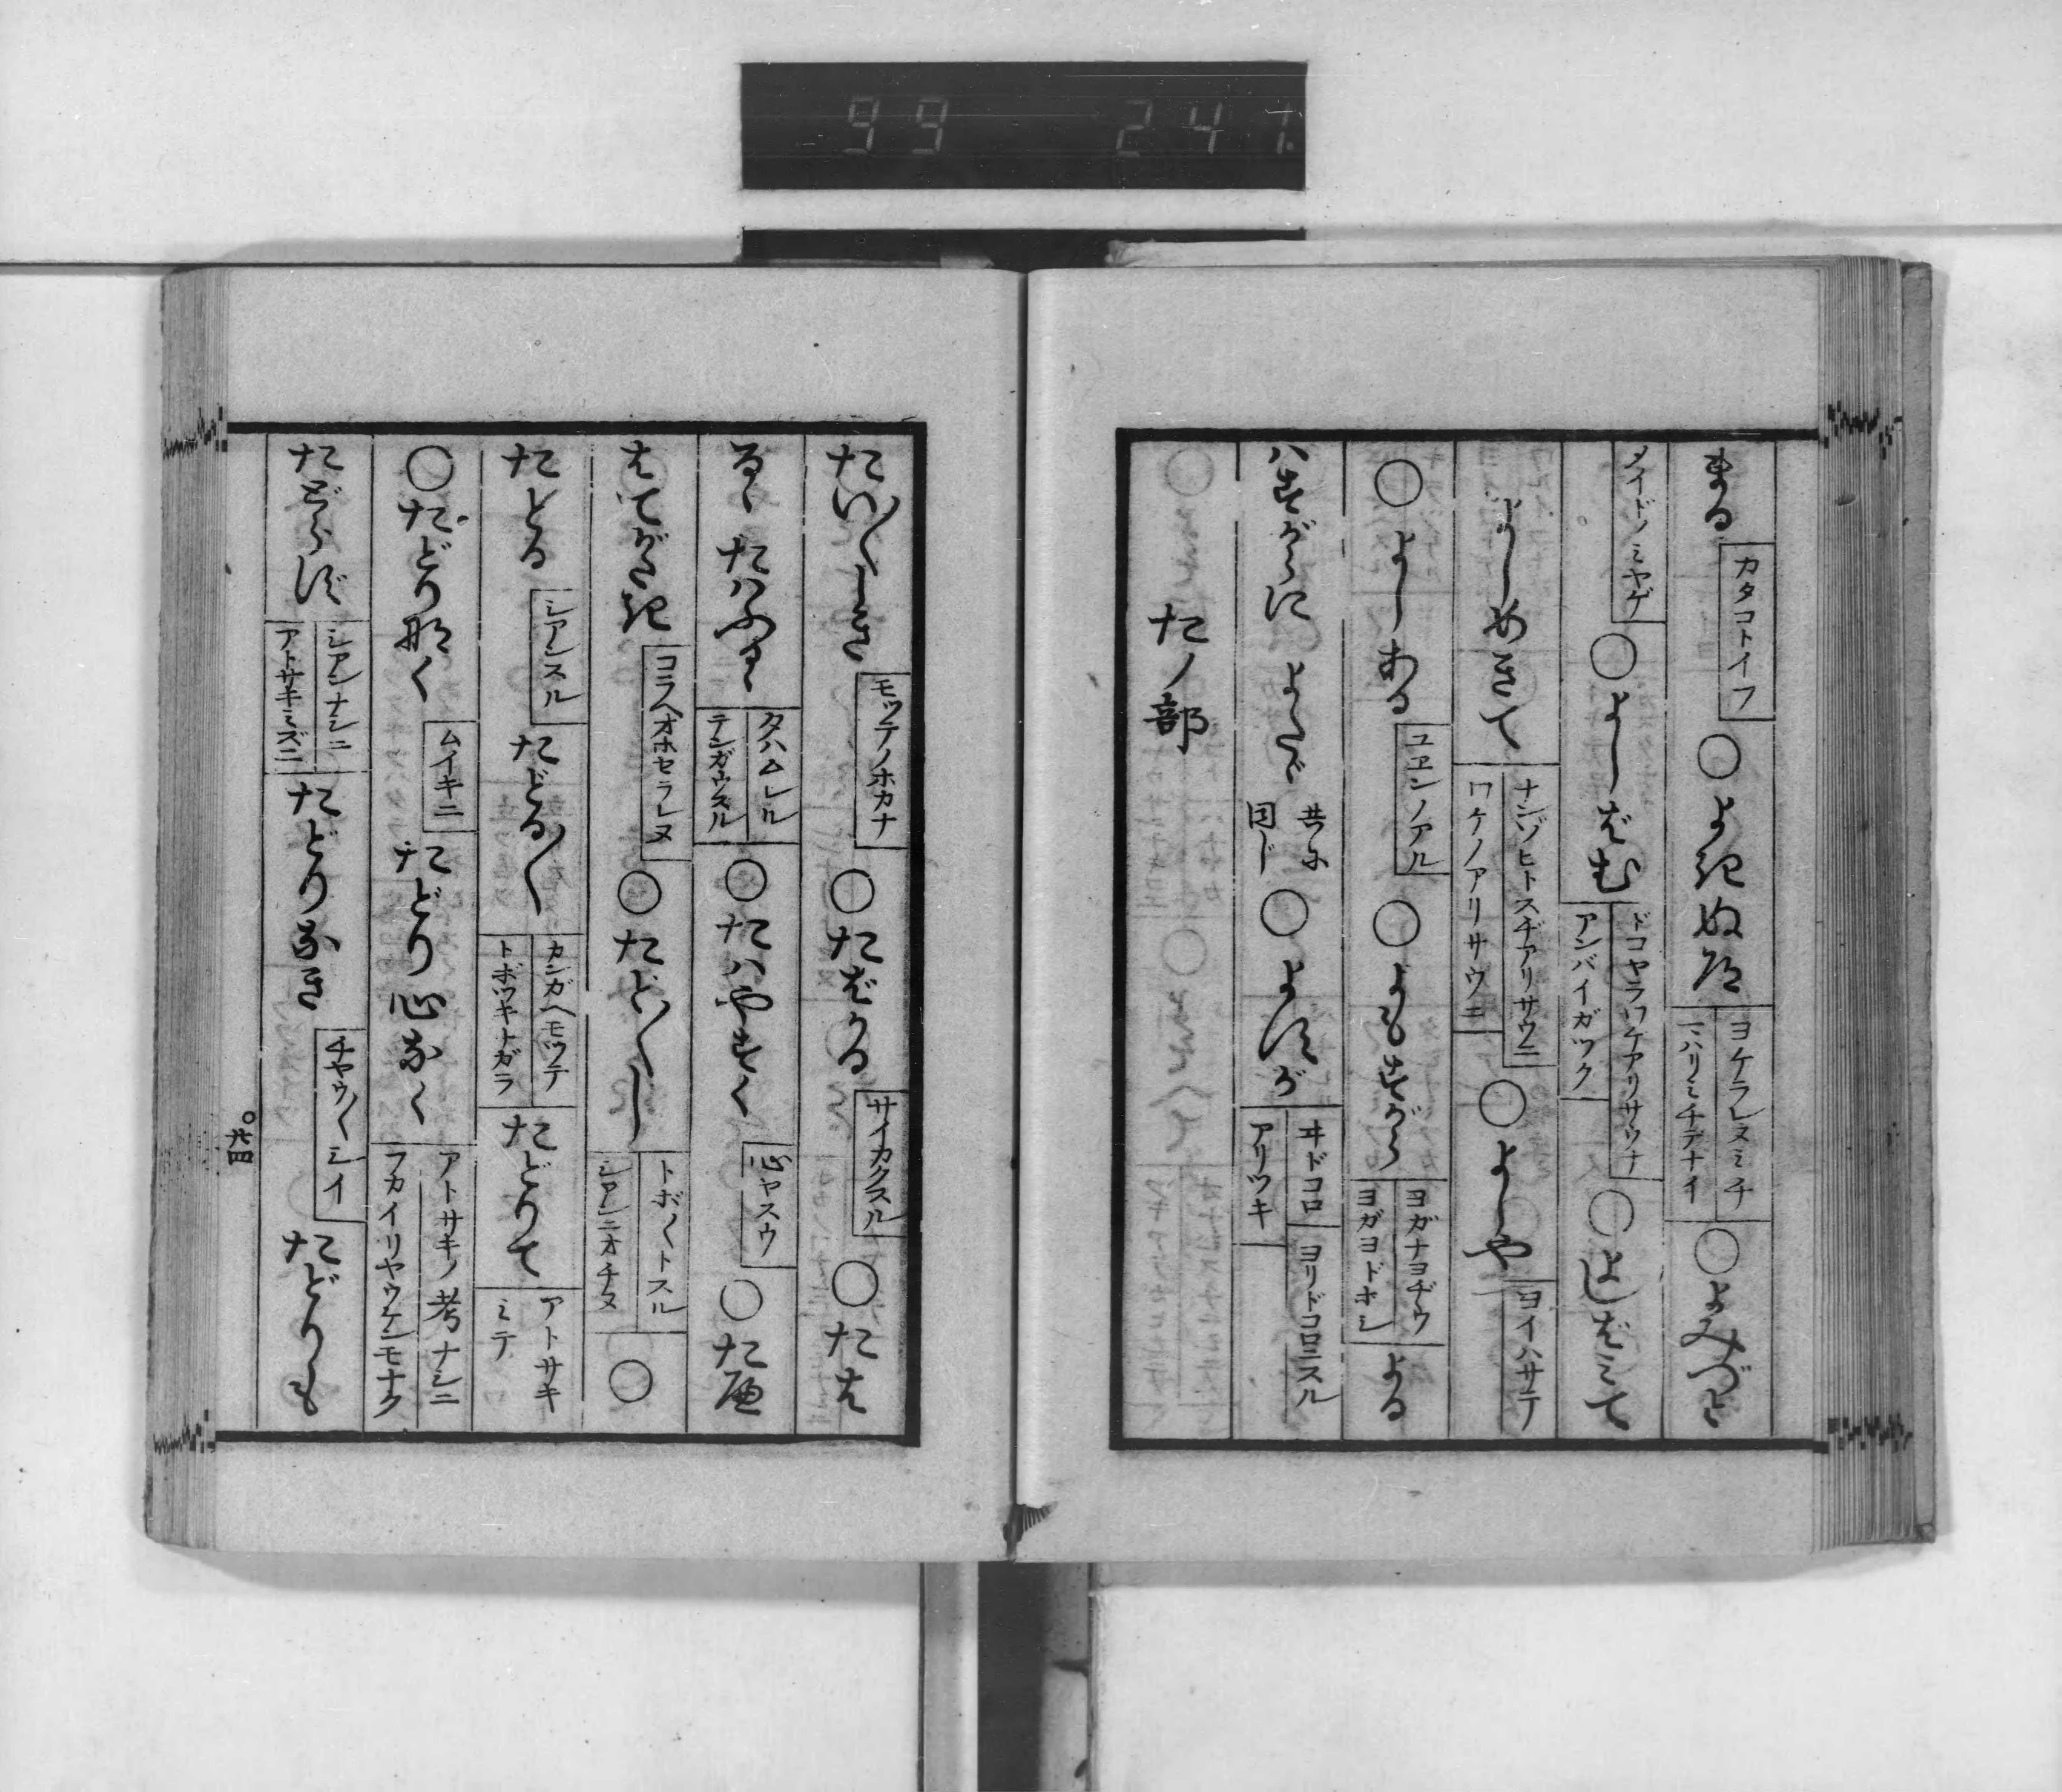 99 241
まる カタコトイフ ○よきぬ道 ヨケラレヌミチ マハリミチデナイ ○よみづと
メイドノミヤゲ ○よしばむ ドコヤラワケアリサウナ アンバイガツク ○よしばみて
よしめきて ナンゾヒトスヂアリサウニ ワケノアリサウニ ○よしや ヨイハサテ
○よしある ユヱンノアル ○よもすがら ヨガナヨヂウ ヨガヨドホシ よる
ハすがらに よたゞ 共に 同じ ○よすが ヰドコロ アリツキ ヨリドコロニスル
たノ部
たい〳〵しき モツテノホカナ ○たばかる サイカクスル ○たは
るゝ たハふるゝ タハムレル テンガウスル ○たハやすく 心ヤスウ ○た便
たてがたき コラヘオホセラレヌ ○たど〳〵し トボ〳〵トスル シアンニオチヌ ○
たどる シアンスル たどる〳〵 カンガヘモツテ トボツキナガラ たどりて アトサキ ミテ
○たどり那く ムイキニ たどり心なく アトサキノ考ナシニ フカイリヤウケンモナク
たどらず シアンナシニ アトサキミズニ たどりなき チヤウ〳〵シイ たどりも
○廿四